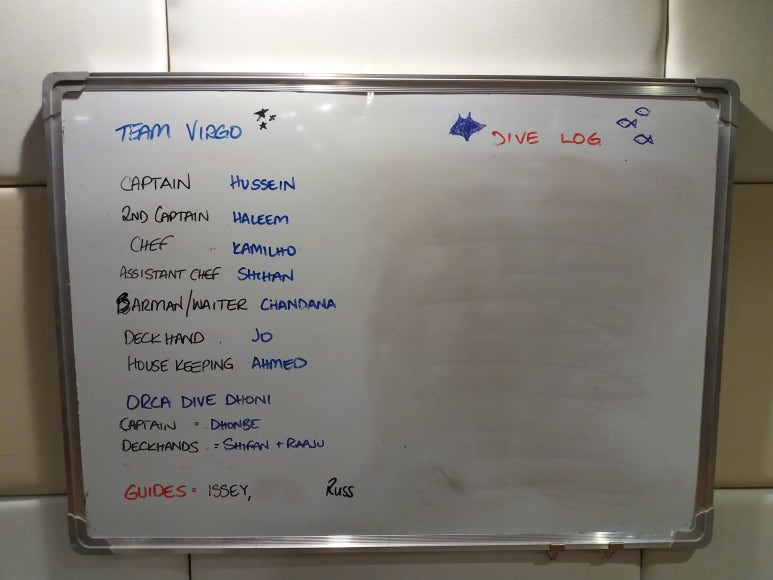 TEAM VIRGO
DIVE LOG
CAPTAIN HUSSEIN
2ND CAPTAIN HALEEM
CHEF KAMILHO
ASSISTANT CHEF SHIHAN
BARMAN/WAITER CHANDANA
DECKHAND JO
HOUSE KEEPING AHMED
ORCA DIVE DHONI
CAPTAIN = DHONBE
DECKHANDS = SHIFAN + RAAJU
GUIDES = ISSEY, RUSS